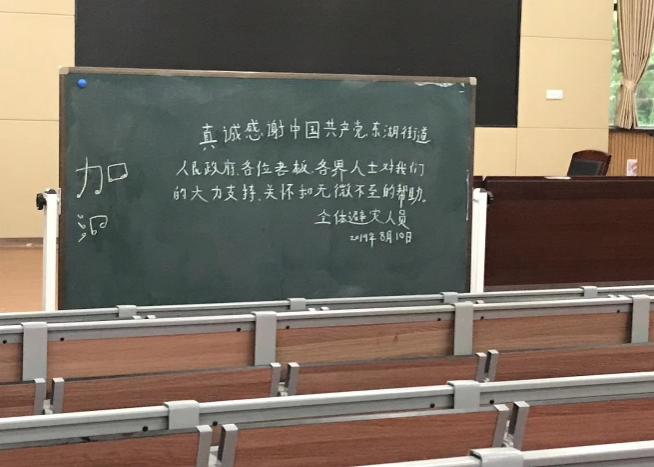 真诚感谢中国共产党、东湖街道
人民政府、各位老板、各界人士对我们
的大力支持、关怀和无微不至的帮助。
全体避灾人员
2019年8月10日
加